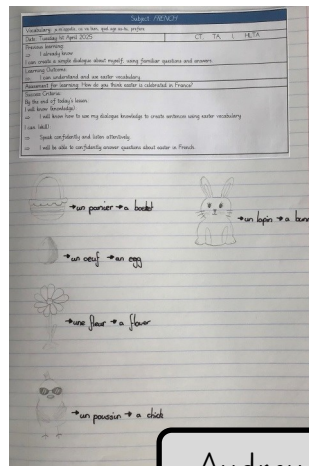 Subject: FRENCH
Date: Tuesday 1st April 2025
CT, TA, L, HLTA
Previous learning:
I already know
I can create a simple dialogue about myself, using familiar questions and answers.
Learning Outcome:
I can understand and use easter vocabulary
Assessment for learning: How do you think easter is celebrated in France?
Success Criteria:
By the end of today's lesson:
I will know (knowledge)
I will know how to use my dialogue knowledge to create sentences using easter vocabulary
I can (skill)
Speak confidently and listen attentively
I will be able to confidently answer questions about easter in French.
→un panier → a basket
→un lapin → a bunn
→un oeuf → an egg
→une fleur → a flower
→un poussin → a chick